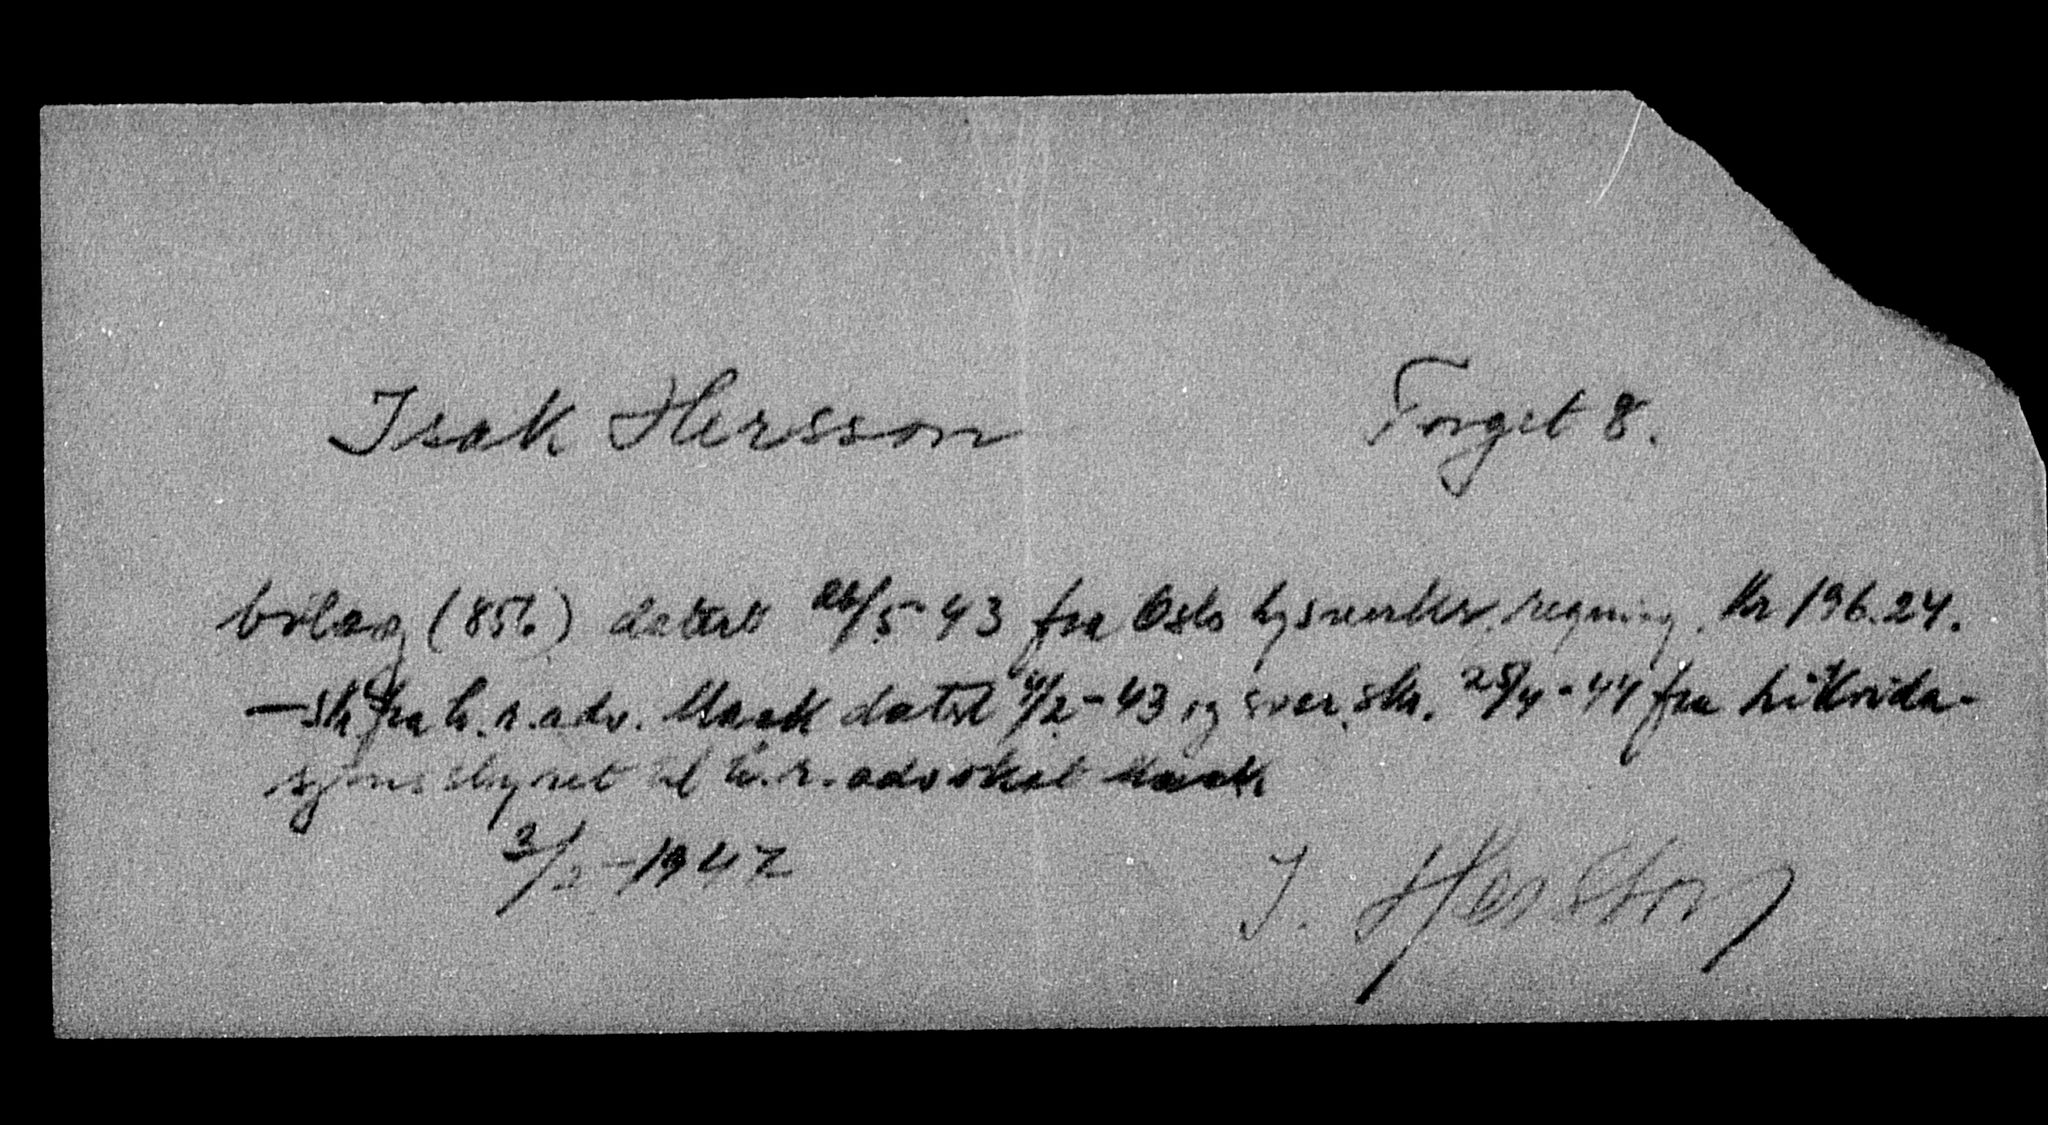 Isak Hersson Torget 8.
bilag (851.) datert 26/5-43 fra Oslo lysverker, regning. Kr 196.24.
— skr fra h.r.adv. Maak datert 4/2-43 og svar skr. 25/4-44 fra Likvida-
sjonsstyret til h.r. advokat Maak
3/2-1947
I. Hersson